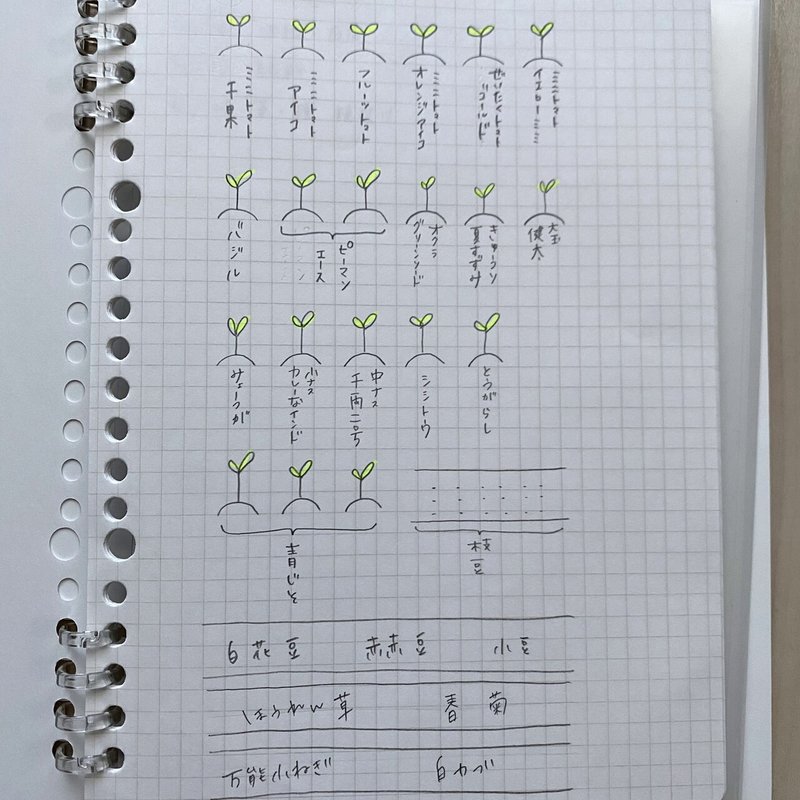 ミニトマト
千果
ミニトマト
アイコ
フルーツトマト
ミニトマト
オレンジアイコ
ぜいたくトマト
ゴールド
ミニトマト
イエローミミ
バジル
ピーマン
エース
オクラ
グリーンソード
きゅうり
夏すずみ
大玉
健太
みょうが
小ナス
カレーなインド
中ナス
千両二号
シシトウ
とうがらし
青じそ
枝豆
白花豆 赤赤豆 小豆
ほうれん草 春菊
万能小ねぎ 白カブ